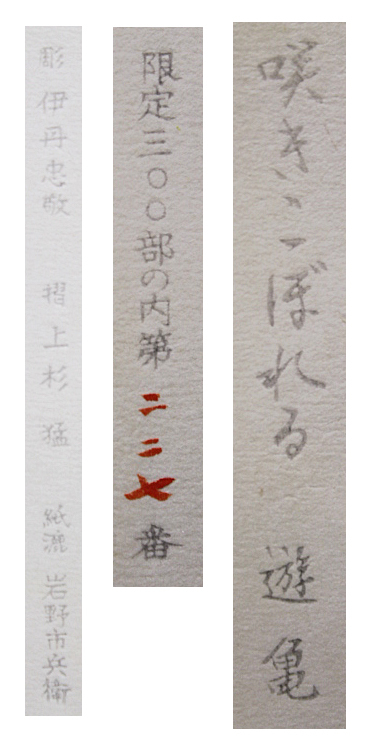 咲きこぼれる　遊亀
限定三〇〇部の内第二二七番
彫 伊丹忠敬　摺 上杉 猛　紙漉 岩野市兵衛